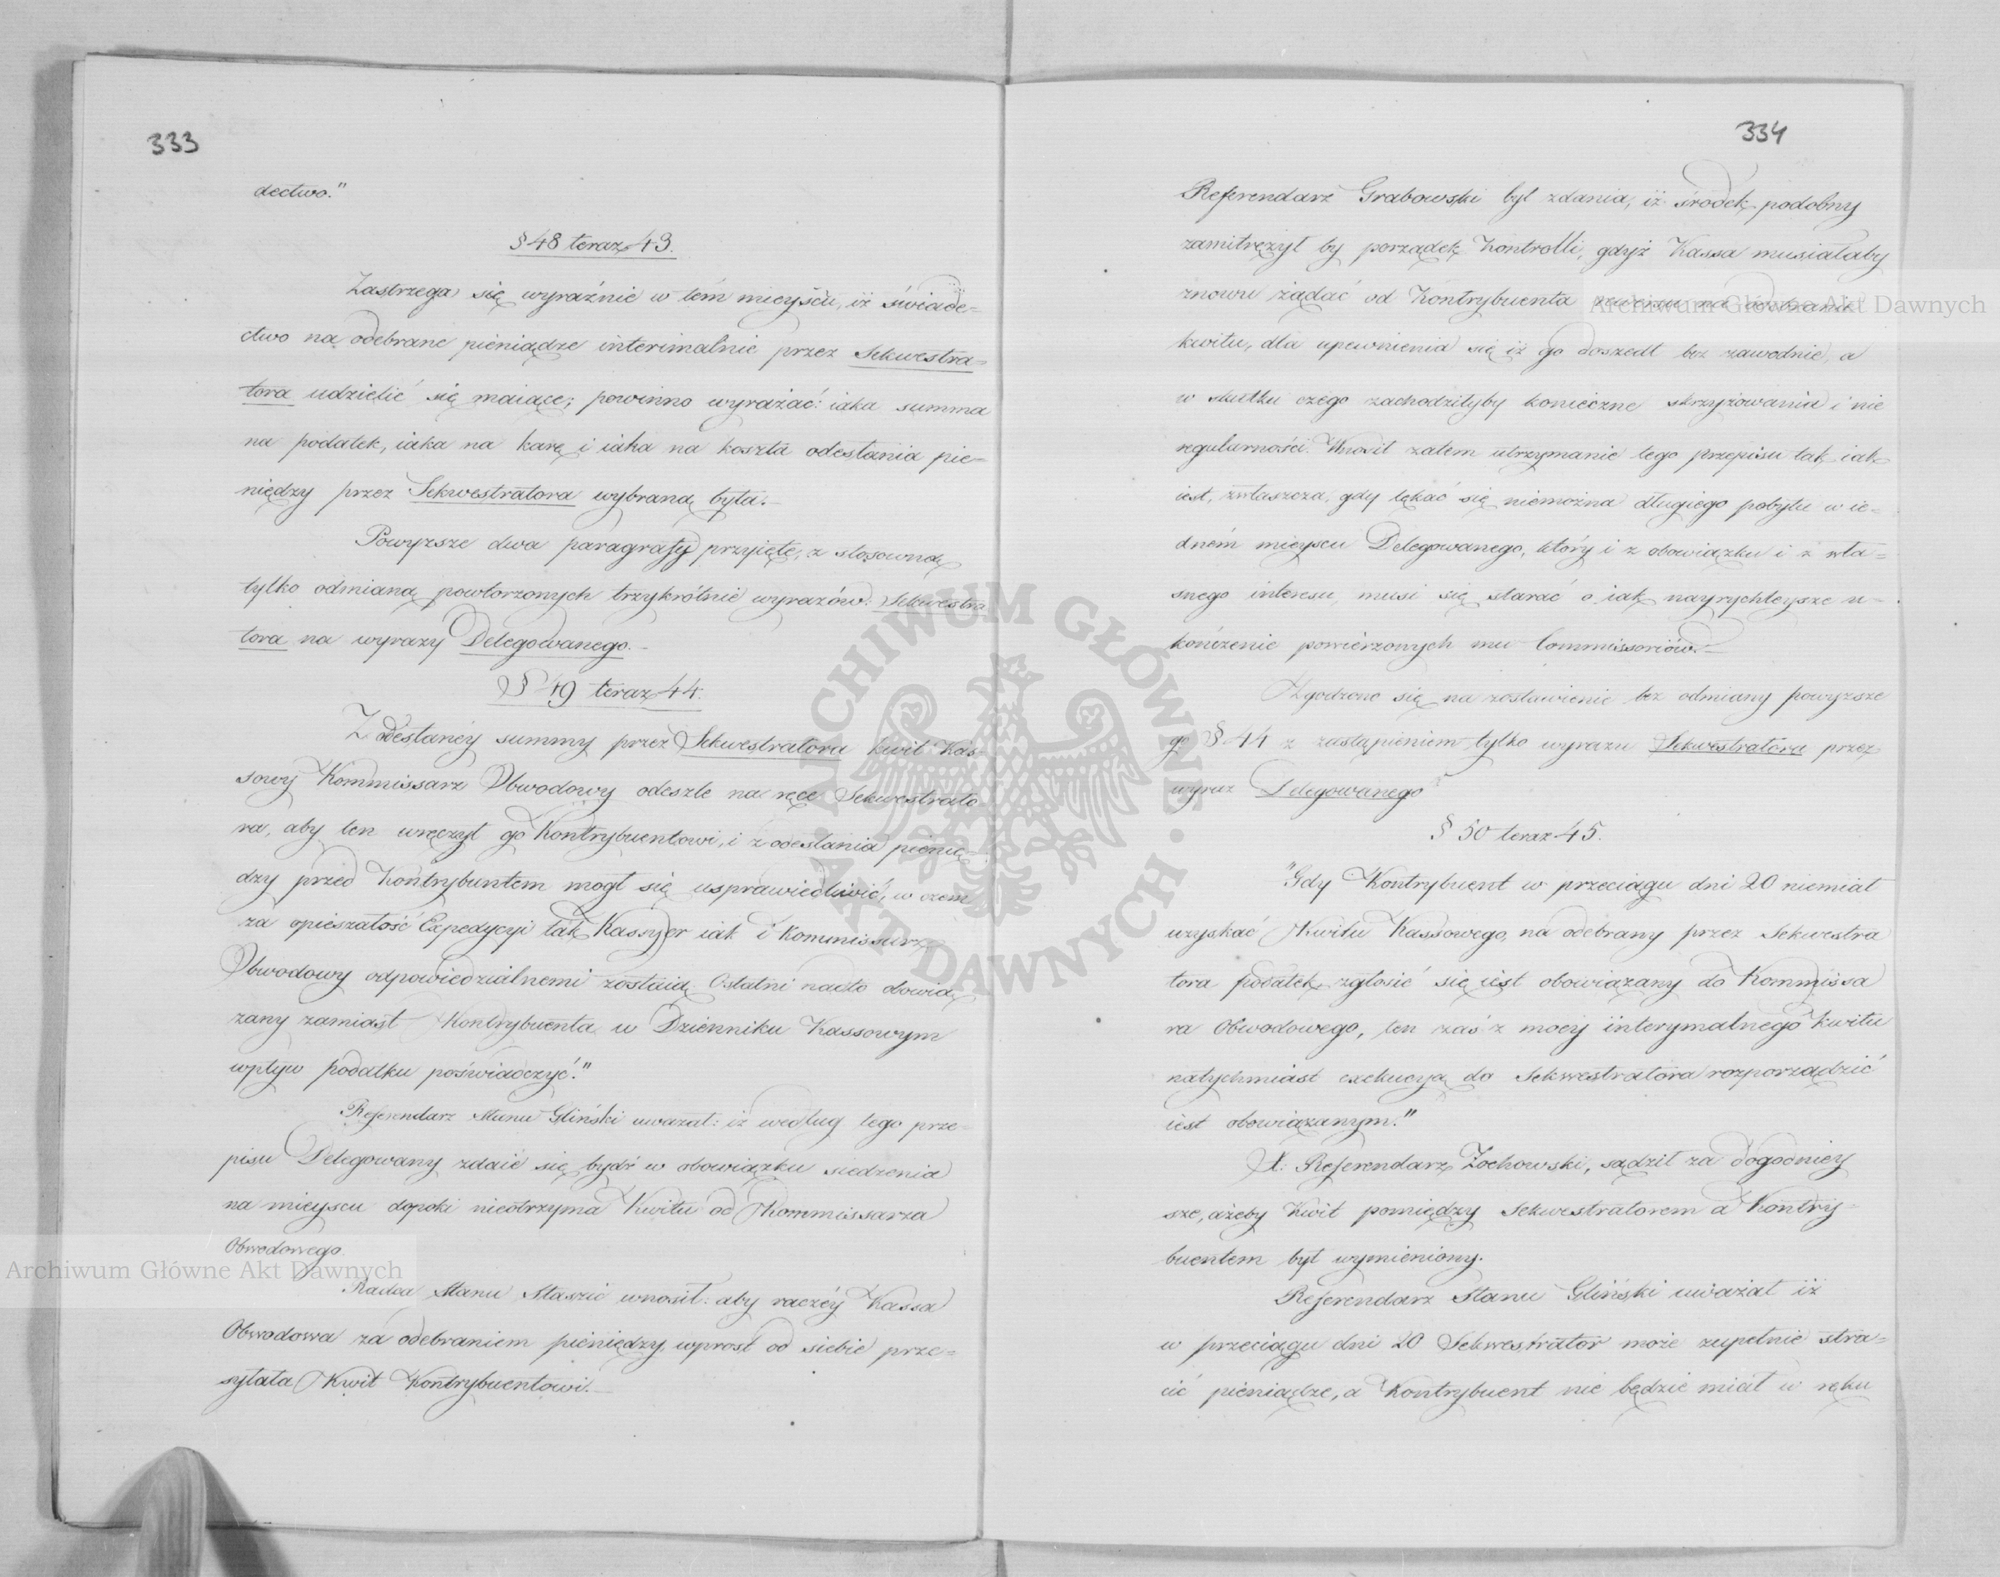 333
dectwo."
§ 48 teraz 43.
Zastrzega się wyraźnie w tém mieyscu, iż świade-
ctwo na odebrane pieniądze interimalnie przez Sekwestra-
tora udzielić się maiące; powinno wyrażać: iaka summa
na podatek, iaka na karę i iaka na koszta odesłania pie-
niędzy przez Sekwestratora wybraną była.-
Powyższe dwa paragrafy przyięte, z stosowną
tylko odmianą powtorzonych trzykrótnie wyrazów: Sekwestra
tora na wyrazy Delegowanego.-
§ 49 teraz 44.
Z odesłanéy summy przez Sekwestratora kwit Kas-
sowy Kommissarz Obwodowy odeszle na ręce Sekwestrato
ra, aby ten wręczył go Kontrybuentowi, i z odesłania pienię-
dzy przed Kontrybuntem mogł się usprawiedliwić, w czem
za opieszałość Expedycyi tak Kassyer iak i Kommissarz
Obwodowy odpowiedzialnemi zostaią Ostatni nadto obowią
zany zamiast Kontrybuenta w Dzienniku Kassowym
wpływ podatku poświadczyć."
Referendarz Stanu Gliński uważał: iż według tego prze-
pisu Delegowany zdaie się bydź w obowiązku siedzenia
na mieyscu dopoki nieotrzyma Kwitu od Kommissarza
Obwodowego.
Radca Stanu Staszic wnosił: aby raczéy Kassa
Obwodowa za odebraniem pieniędzy wprost od siebie prze-
syłała Kwit Kontrybuentowi.-
334
Referendarz Grabowski był zdania, iż środek podobny
zamitrężył by porządek Kontrolli, gdyż Kassa musiałaby
znowu żądać od Kontrybuenta na odebranie
kwitu, dla upewnienia się iż go doszedł bez zawodnie, a
w skutku czego zachodziłyby konieczne skrzyżowania i nie
regularności. Wnosił zatem utrzymanie tego przepisu tak iak
iest, zwłaszcza, gdy lękać się niemożna długiego pobytu w ie-
dném mieyscu Delegowanego, który i z obowiązku i z wła-
snego interesu, musi się starać o iak nayrychleysze u-
kończenie powierzonych mu Commissoriów.-
Zgodzono się na zostawienie bez odmiany powyższe
go § 44 z zastąpieniem tylko wyrazu Sekwestratora przez
wyraz Delegowanego
§ 50 teraz 45.
"Gdy Kontrybuent w przeciągu dni 20 niemiał
uzyskać Kwitu Kassowego, na odebrany przez Sekwestra
tora podatek, zgłosić się iest obowiązany do Kommissa
ra Obwodowego, ten zaś z mocy interymalnego Kwitu
natychmiast exekucyą do Sekwestratora rozporządzić
iest obowiązanym."
X. Referendarz Żochowski, sądził za dogodniey
sze, ażeby Kwit pomiędzy Sekwestratorem a Kontry-
buentem był wymieniony.
Referendarz Stanu Gliński uważał iż
w przeciągu dni 20 Sekwestrator może zupełnie stra-
cić pieniądze, a Kontrybuent nie będzie miał w ręku
Archiwum Główne Akt Dawnych
Archiwum Główne Akt Dawnych
ARCHIWUM GŁÓWNE AKT DAWNYCH